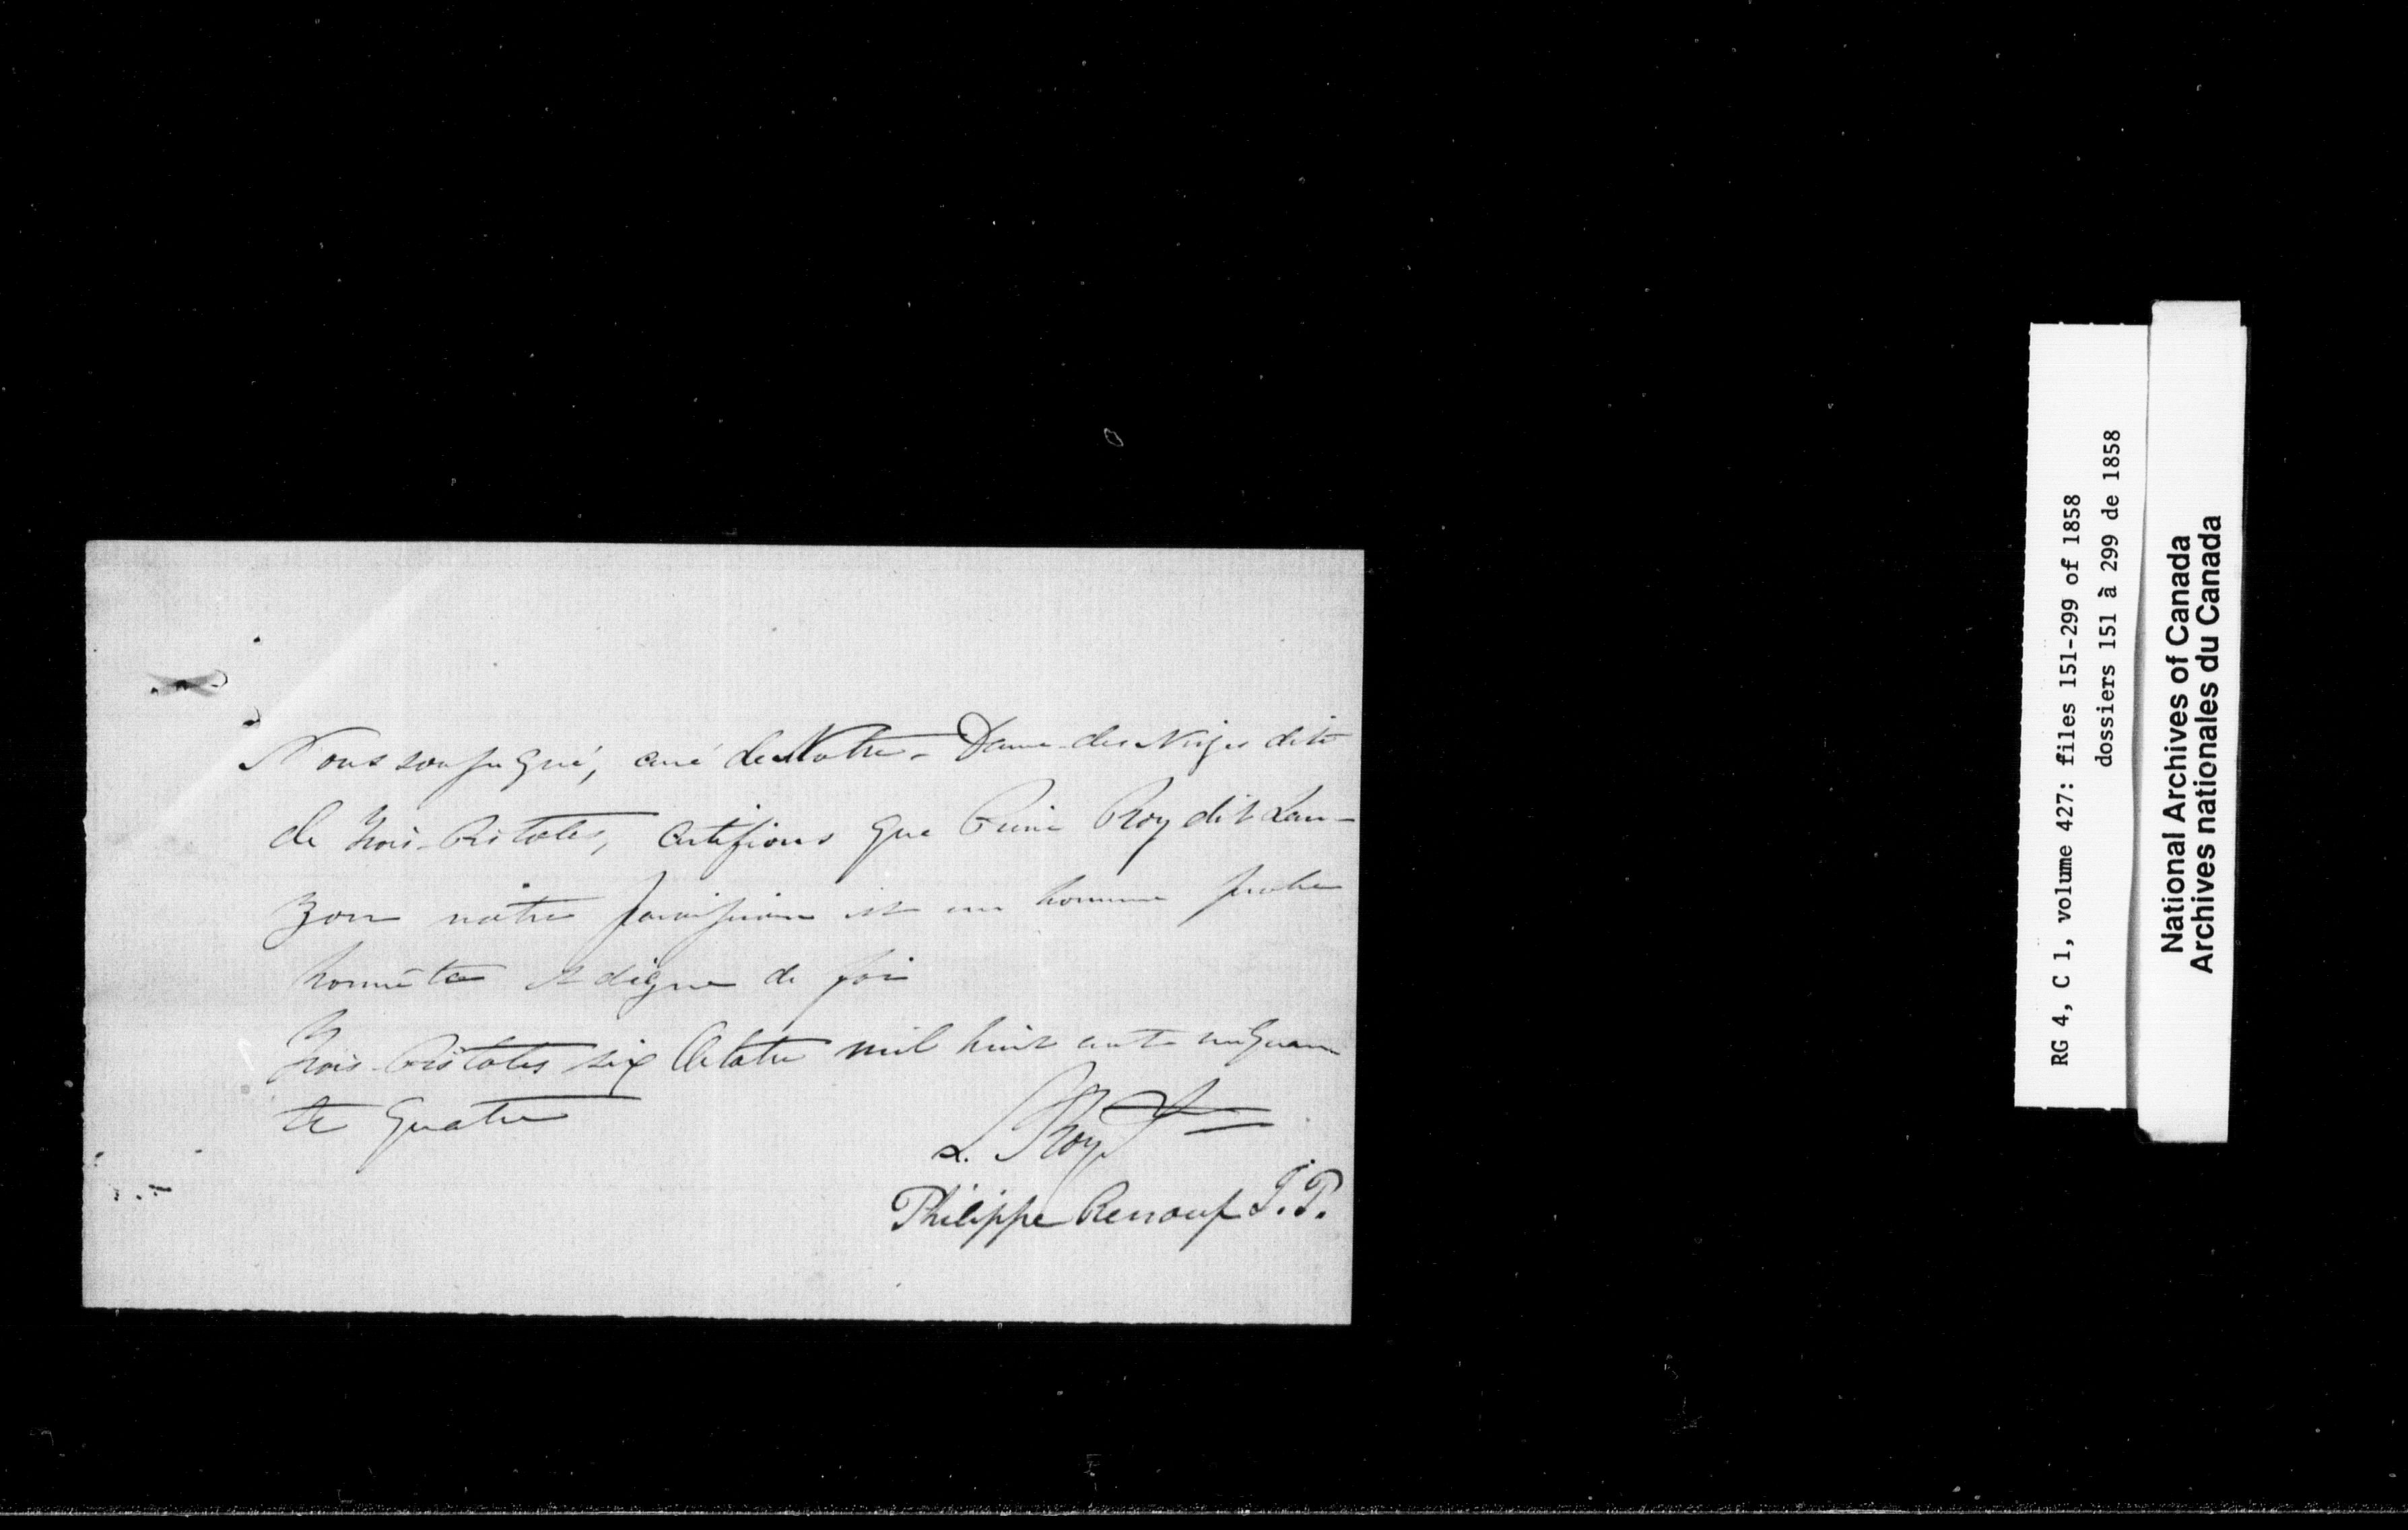 Nous soussigné, curé de Notre-Dame-des Neiges dite
de Trois-Pistoles, certifions que Roy dit Lau-
zon nôtre paroissien est un homme probe
honnête et digne de foi
Trois-Pistoles six Octobre mil huit cents cinquan
te quatre
L. Roy Ptre
Philippe Renouf J.P.
RG 4, C 1, volume 427: files 151-299 of 1858
dossiers 151 à 299 de 1858
National Archives of Canada
Archives nationales du Canada